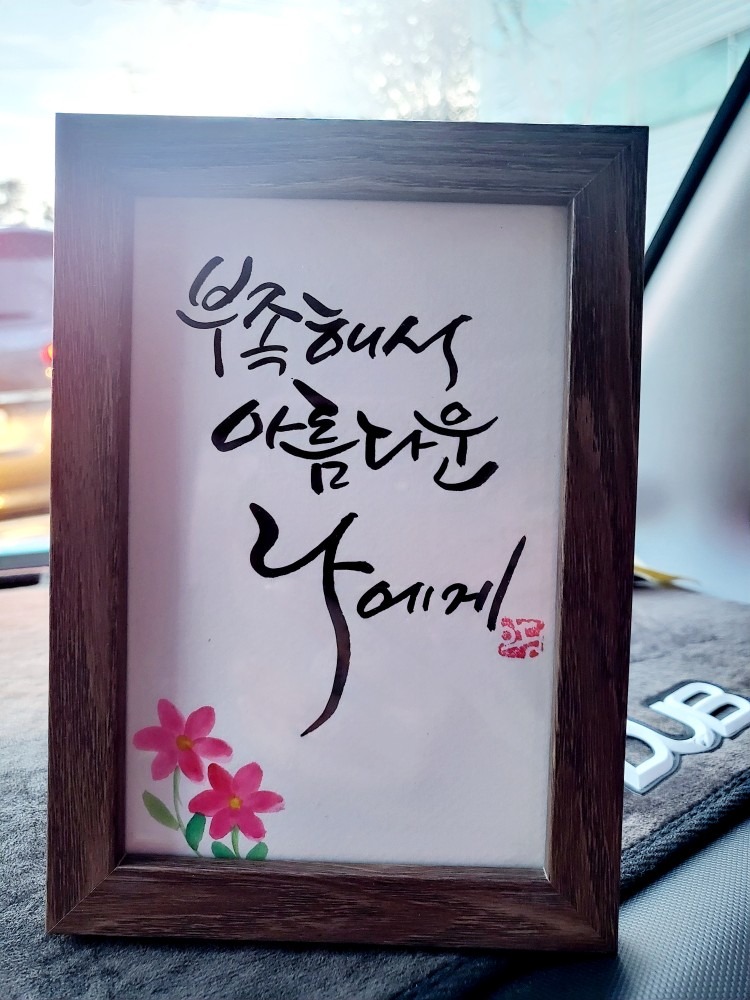 부족해서
아름다운
나에게
DUB